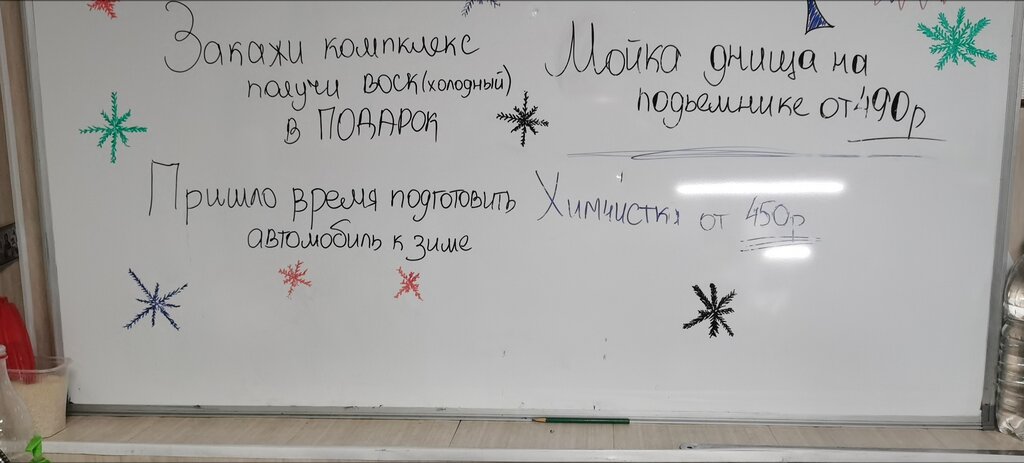 Закажи компклекс
получи воск(холодный)
в ПОДАРОК
Пришло время подготовить
автомобиль к зиме
Мойка днища на
подьемнике от 490р
Химчистка от 450р